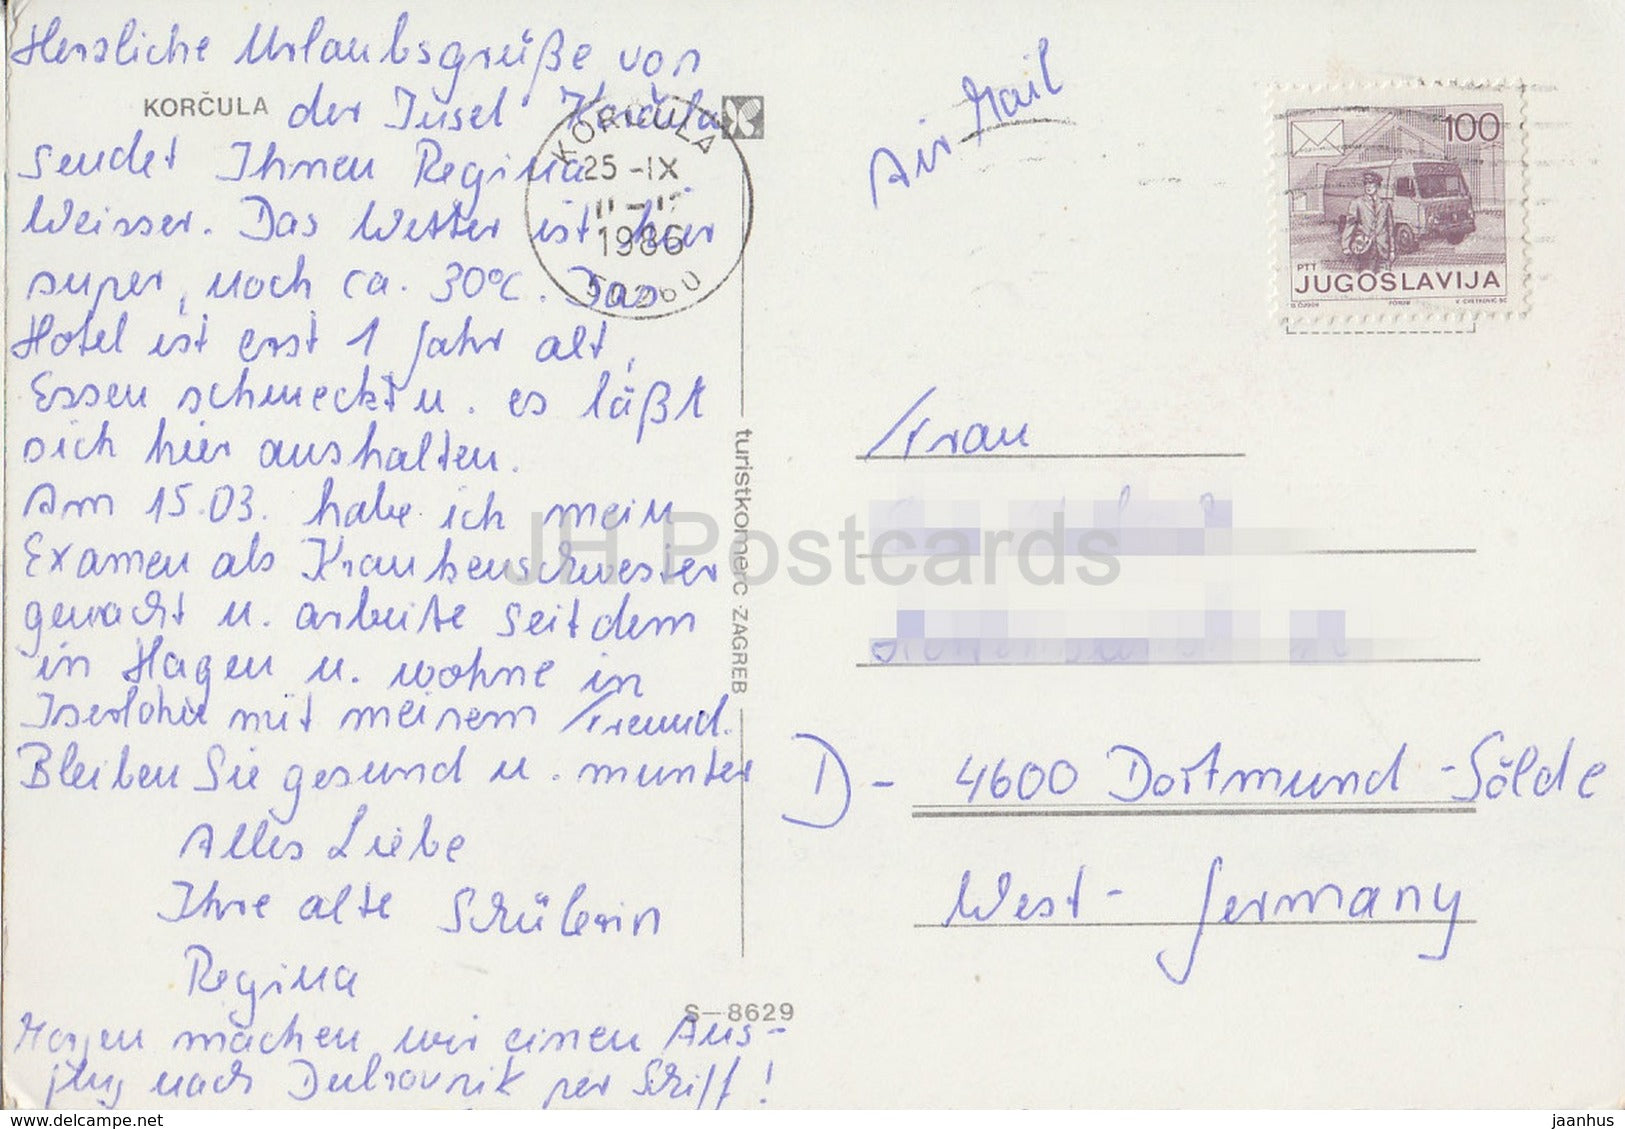 Herzliche Urlaubsgrüße von
KORČULA
der Insel Korčula
sendet Ihnen Regina
Weisser. Das Wetter ist hier
super, noch ca. 30°C. Das
Hotel ist erst 1 Jahr alt,
Essen schmeckt u. es läßt
sich hier aushalten.
Am 15.03. habe ich mein
Examen als Krankenschwester
gemacht u. arbeite seitdem
in Hagen u. wohne in
Iserlohn mit meinem Freund.
Bleiben Sie gesund u. munter
Alles Liebe
Ihre alte Schülerin
Regina
Morgen machen wir einen Aus-
flug nach Dubrovnik per Schiff!
KORČULA
25-IX
1986
50260
turistkomerc ZAGREB
S-8629
Air Mail
100
PTT
JUGOSLAVIJA
Frau
D- 4600 Dortmund-Sölde
West-Germany
JH Postcards
jaanhus on Delcampe.net
jaanhus